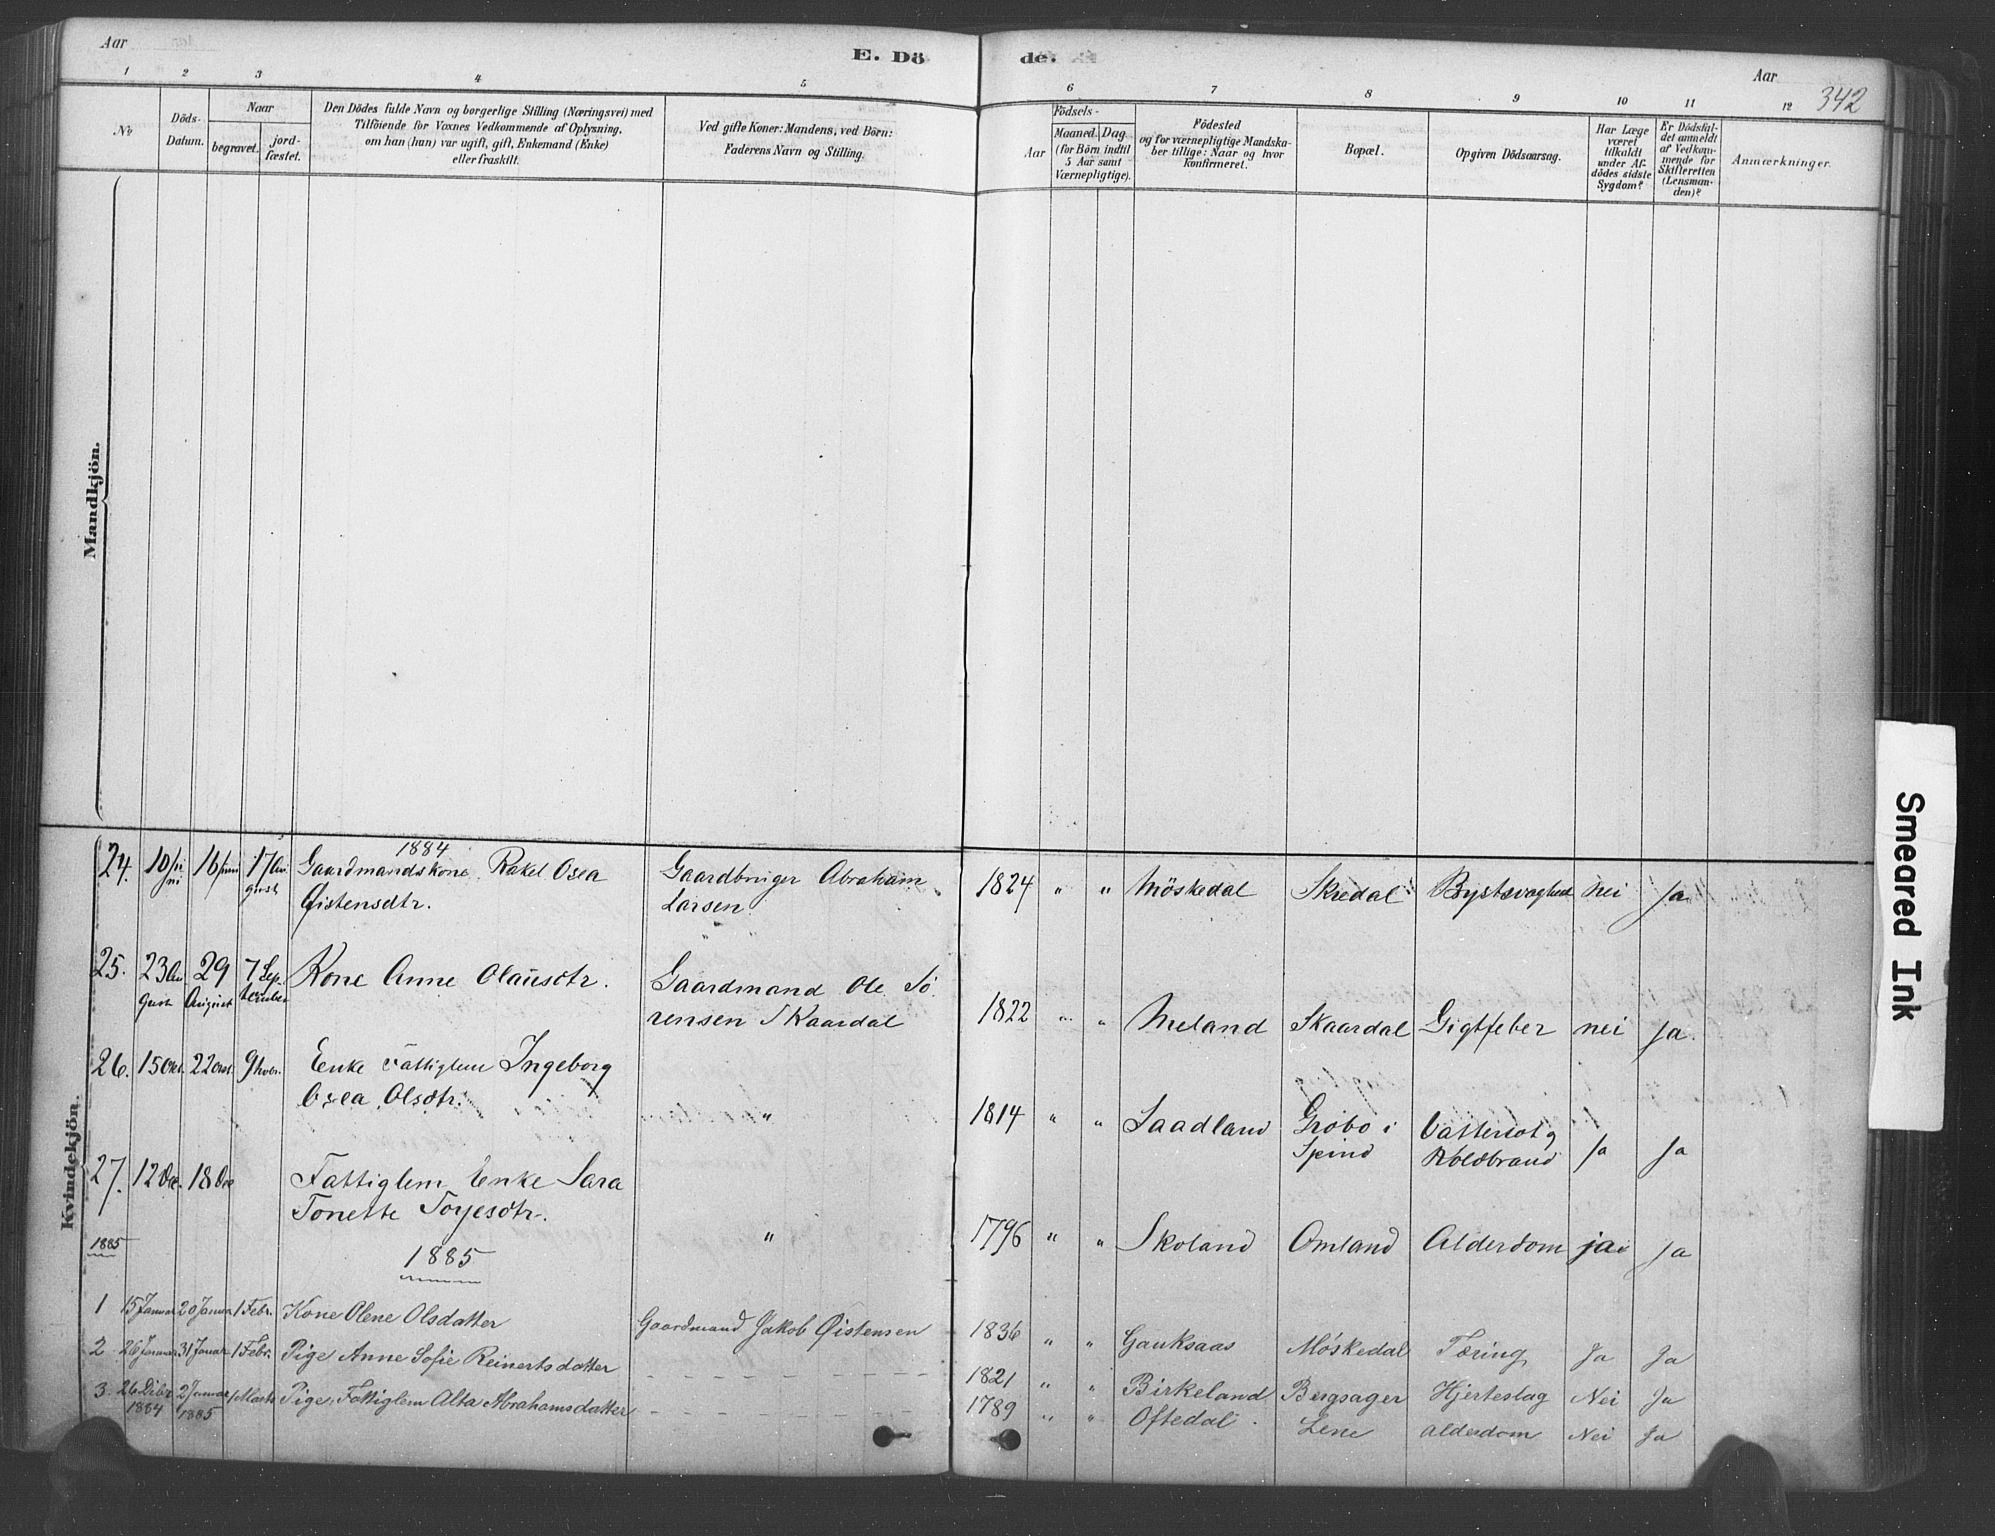 Aar
E. Dö
de.
Aar
342
1 2 3 4 5 6 7 8 9 10 11 12
No
Döds-
Datum.
Naar
begravet.
jord-
fæstet.
Den Dödes fulde Navn og borgerlige Stilling (Næringsvei) med
Tilföiende for Voxnes Vedkommende af Oplysning,
om han (hun) var ugift, gift, Enkemand (Enke)
eller fraskilt.
Ved gifte Koner: Mandens, ved Börn:
Faderens Navn og Stilling.
Födsels-
Aar
Maaned.
Dag
(for Börn indtil
5 Aar samt
Værnepligtige).
Födested
og for værnepligtige Mandska-
ber tillige: Naar og hvor
Konfirmeret.
Bopæl.
Opgiven Dödsaarsag.
Har Læge
været
tilkaldt
under Af-
dödes sidste
Sygdom?
Er Dödsfal-
det anmeldt
af Vedkom-
mende for
Skifteretten
(Lensman-
den)?
Anmærkninger.
Mandkjön.
Kvindekjön.
1884
24. 10 Ju 16 Juni 17 Au Gaardmandskone Rakel Osea Gaardbruger Abraham 1824 " " Möskedal Skredal Bystsvaghed nei Ja
ni gust Øistensdtr. Larsen
25. 23 Au 29 7 Sep Kone Anne Olausdtr. Gaardmand Ole Sö 1822 " " Meland Skaardal Gigtfeber nei Ja
gust August tember rensen Skaardal
26. 15 Okt. 22 Okt. 9 Nov. Enke Fattiglem Ingeborg
Osea Olsdtr. " 1814 " " Saadland Gröbo i Vattersot og Ja Ja
Spind Koldbrand
27. 12 Dec. 18 Dec Fattiglem Enke Sara
Tonette Torjesdtr. " 1796 " " Skoland Omland Alderdom ja Ja
1885 1885
1 15 Januar 20 Januar 1 Febr. Kone Olene Olsdatter Gaardmand Jakob Øistensen 1836 " " Gauksaas Möskedal Tæring Ja Ja
2 26 Januar 31 Januar 1 Febr. Pige Anne Sofie Reinertsdatter 1821 " " Birkeland Bergsager Hjerteslag Nei Ja
3. 26 Dcbr 2 Januar 1 Marts Pige, Fattiglem Alta Abrahamsdatter 1789 " " Oftedal. Lene alderdom Nei Ja
1884 1885
Smeared Ink